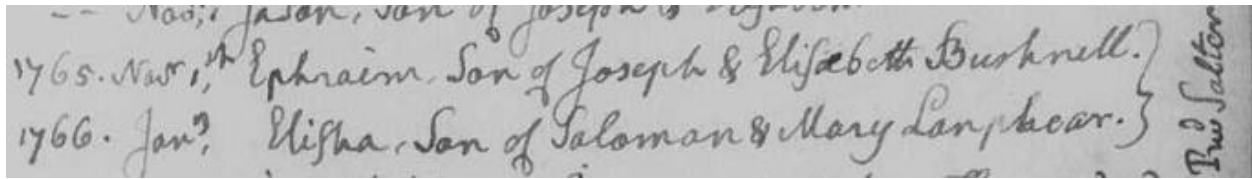 -- Novr, Jason, Son of Joseph &
1765. Novr 1,th Ephraim, Son of Joseph & Elisabeth Bushnell.}
1766. Jany, Elisha, Son of Saloman & Mary Lanphear.}
Revd Salter